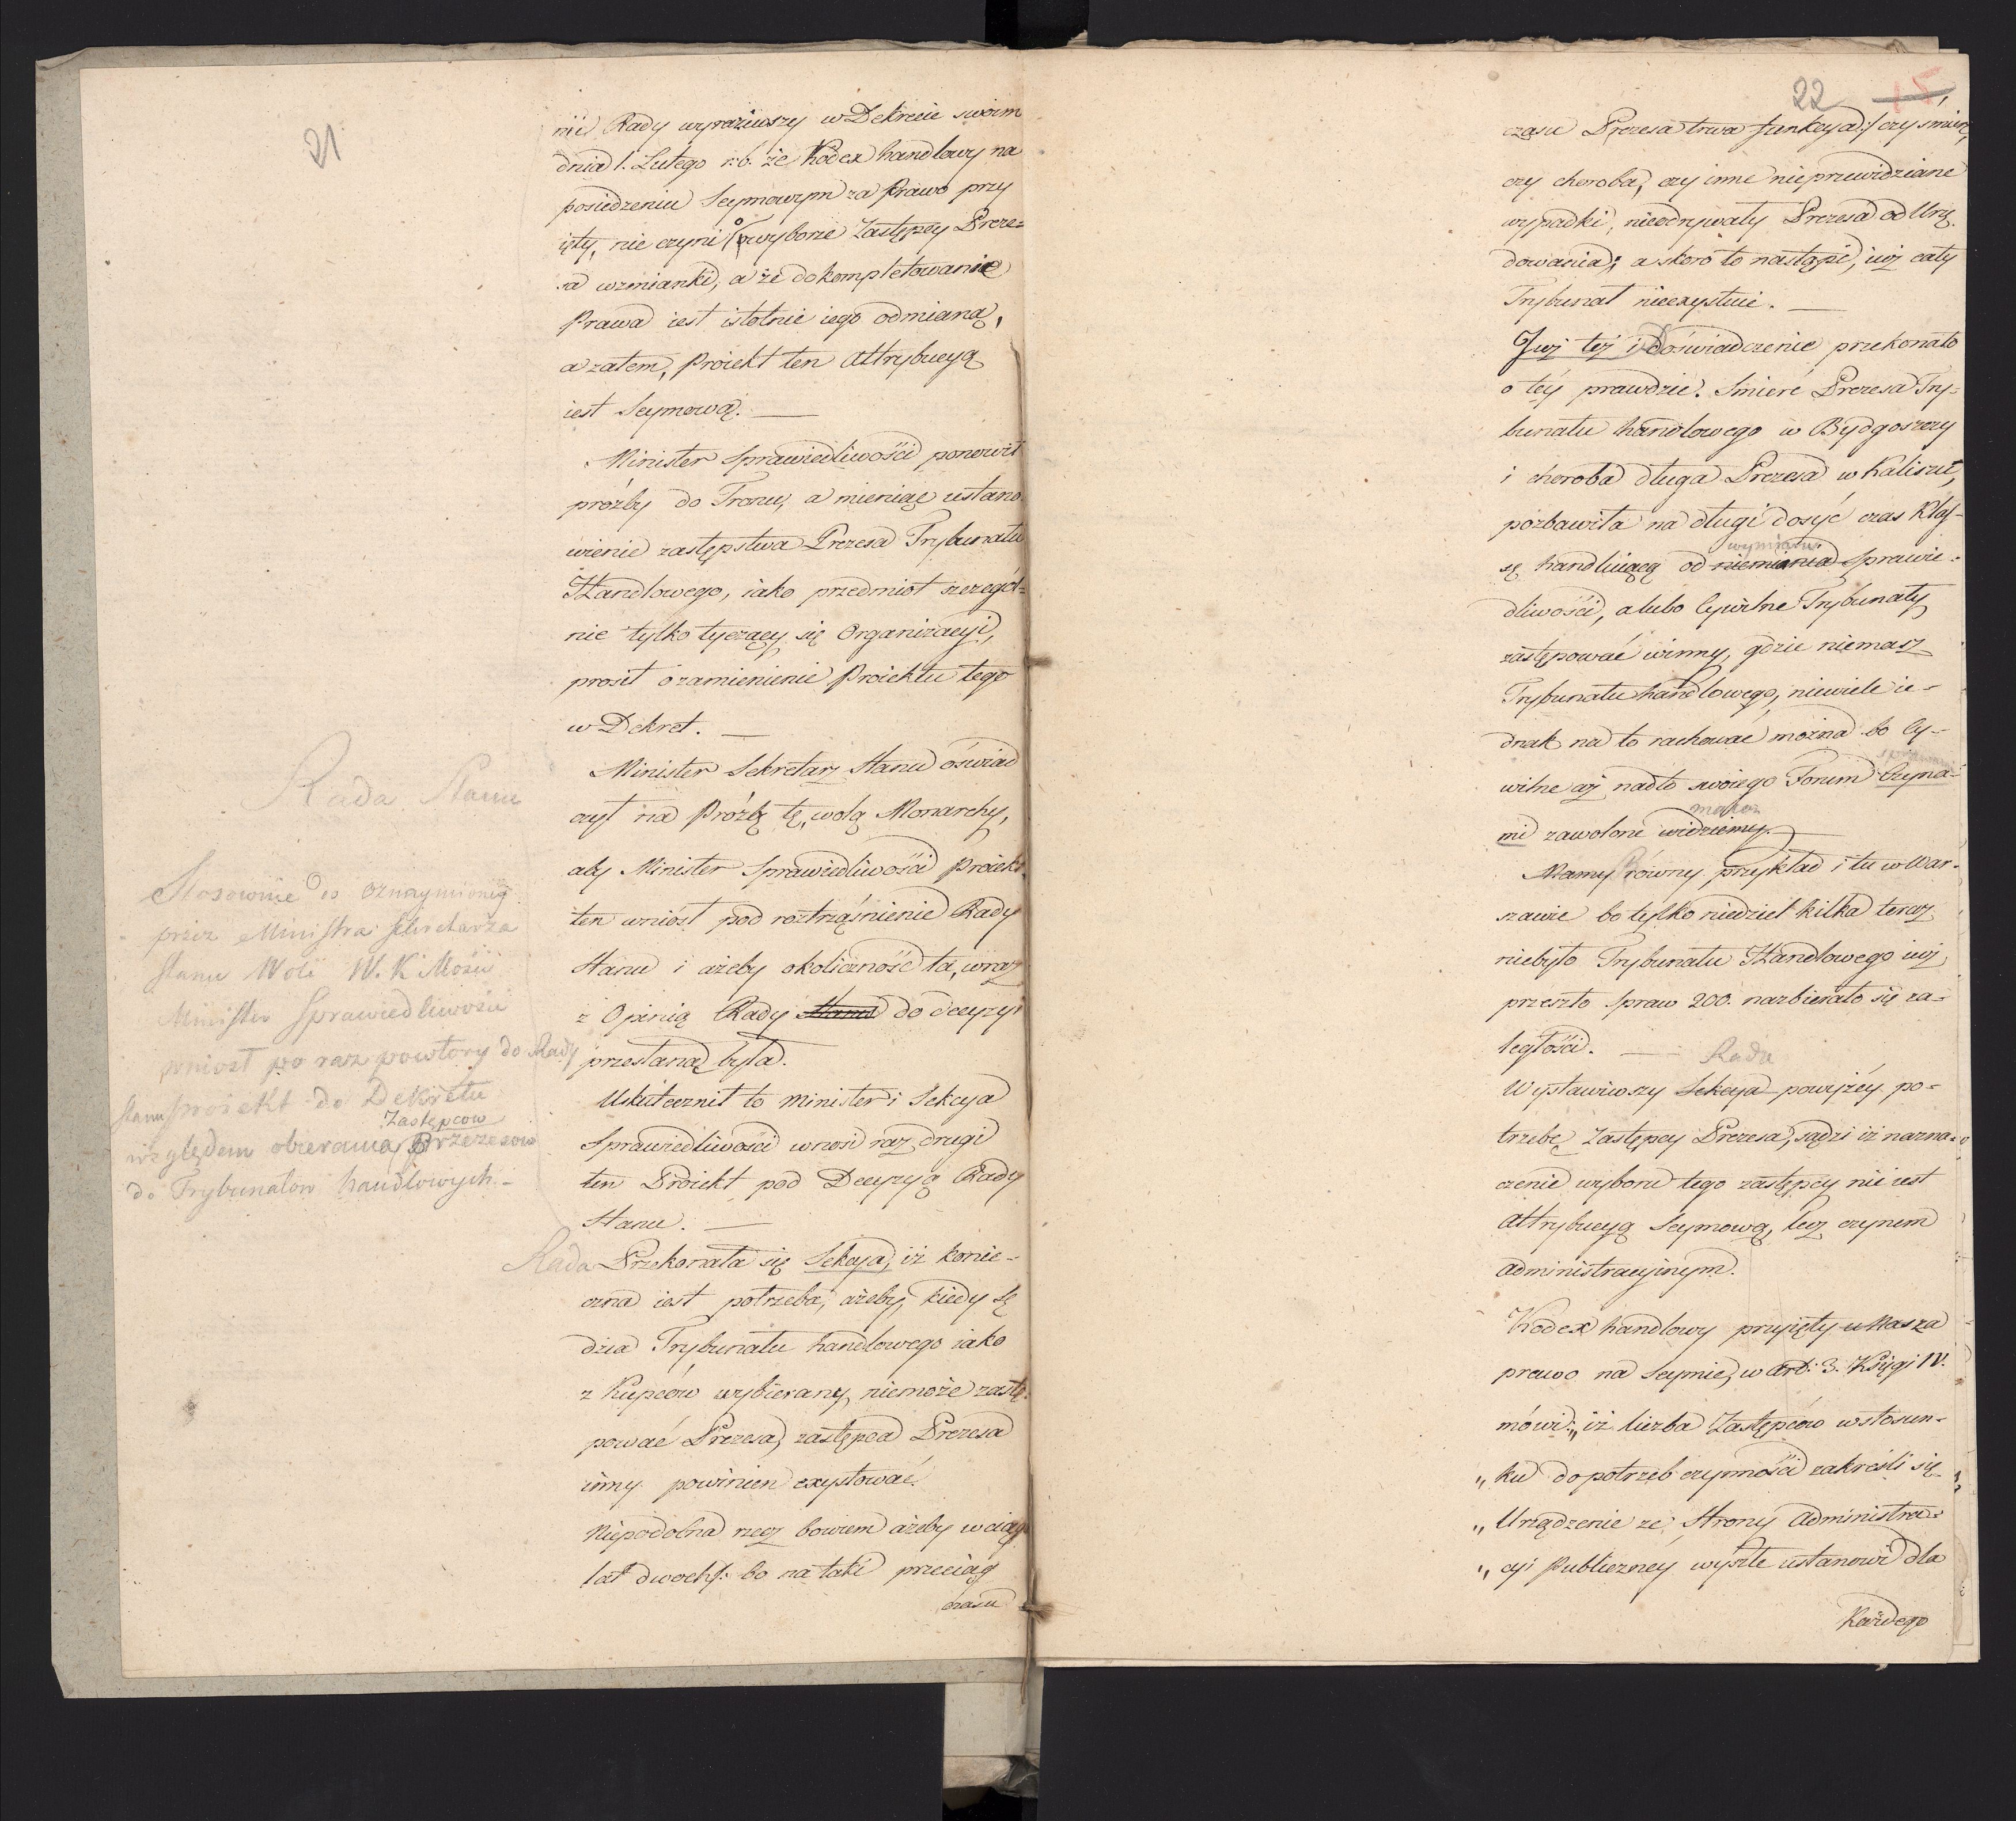 21
nii Rady wyraziwszy w Dekrecie swoim
dnia 1. Lutego r. b. że Kodex handlowy na
posiedzeniu Seymowym za Prawo przy
ięty, nie czyni o wyborze Zastępcy Preze=
sa wzmianki, a że dokompletowanie
Prawa iest istotnie iego odmianą,
a zatem, Proiekt ten Attrybucyą
iest Seymową. —
Minister Sprawiedliwości ponowił
prózby do Tronu, a mieniąc ustano
wienie zastępstwa Prezesa Trybunału
Handlowego, iako przedmiot szczegól=
nie tylko tyczący się Organizacyi,
prosił o zamienienie Proiektu tego
w Dekret. —
Minister Sekretarz Stanu oświad
czył na Próźbę tę, wolą Monarchy,
aby Minister Sprawiedliwości Proiekt
ten wniósł pod roztrząśnienie Rady
Stanu i ażeby okoliczność ta, wraz
z Opinią Rady Stanu do decyzyi
przesłaną była.
Uskutecznił to Minister i Sekcya
Sprawiedliwości wnosi raz drugi
ten Proiekt pod Decyzyą Rady
Stanu. —
Rada Przekonała się Sekcya, iż konie-
czna iest potrzeba, ażeby, kiedy Sę
dzia Trybunału handlowego iako
z Kupców wybierany, niemoże zastę-
pować Prezesa, zastępca Prezesa
inny powinien exystować.
Niepodobna rzecz bowiem ażeby w ciągu
lat dwoch /: bo na taki przeciąg
czasu
Rada Stanu
Stosownie do oznaymioney
przez Ministra Sekretarza
Stanu Woli N. K Mości
Minister Sprawiedliwości
wniosł po raz powtory do Rady
Stanu proiekt do Dekretu
Zastępcow
względem obierania Przezesow
do Trybunalow handlowych -
22 15
czasu Prezesa trwa funkcya :/ czy śmierć,
czy choroba, czy inne nieprzewidziane
wypadki, nieodrywały Prezesa od Urzę
dowania; a skoro to nastąpi, iuż cały
Trybunał nieexystuie. —
Już też i Doświadczenie przekonało
o téy prawdzie. Smierć Prezesa Try-
bunału handlowego w Bydgoszczy
i choroba długa Prezesa w Kaliszu,
pozbawiła na długi dosyć czas Klas-
wymiaru
sę handluiącą od niemiania Sprawie-
dliwości, alubo Cywilne Trybunały
zastępować winny, gdzie niemasz
Trybunału handlowego, niewiele ie-
dnak na to rachować można bo Cy-
sprawami
wilne aż nadto swoiego Forum Czyna-
mi zawolone widziemy. —
Mamy równy przykład i tu w War-
szawie bo tylko niedziel kilka teraz
niebyło Trybunału Handlowego iuż
przeszło Spraw 200. nazbierało się za-
ległości. —
Rada
Wystawiwszy Sekcya powyżéy po-
trzebę Zastępcy Prezesa, sądzi iż nazna-
czenie wyboru tego zastępcy nie iest
Attrybucyą Seymową, lecz czynem
administracyinym.
Kodex handlowy przyięty u Nas za
prawo na Seymie, w Art: 3. Księgi IV.
mówi: „iż liczba Zastępców w stosun-
„ku do potrzeb czynności zakreśli się
„Urządzenie ze Strony Administra-
„cyi Publiczney wyszłe ustanowi dla
Każdego